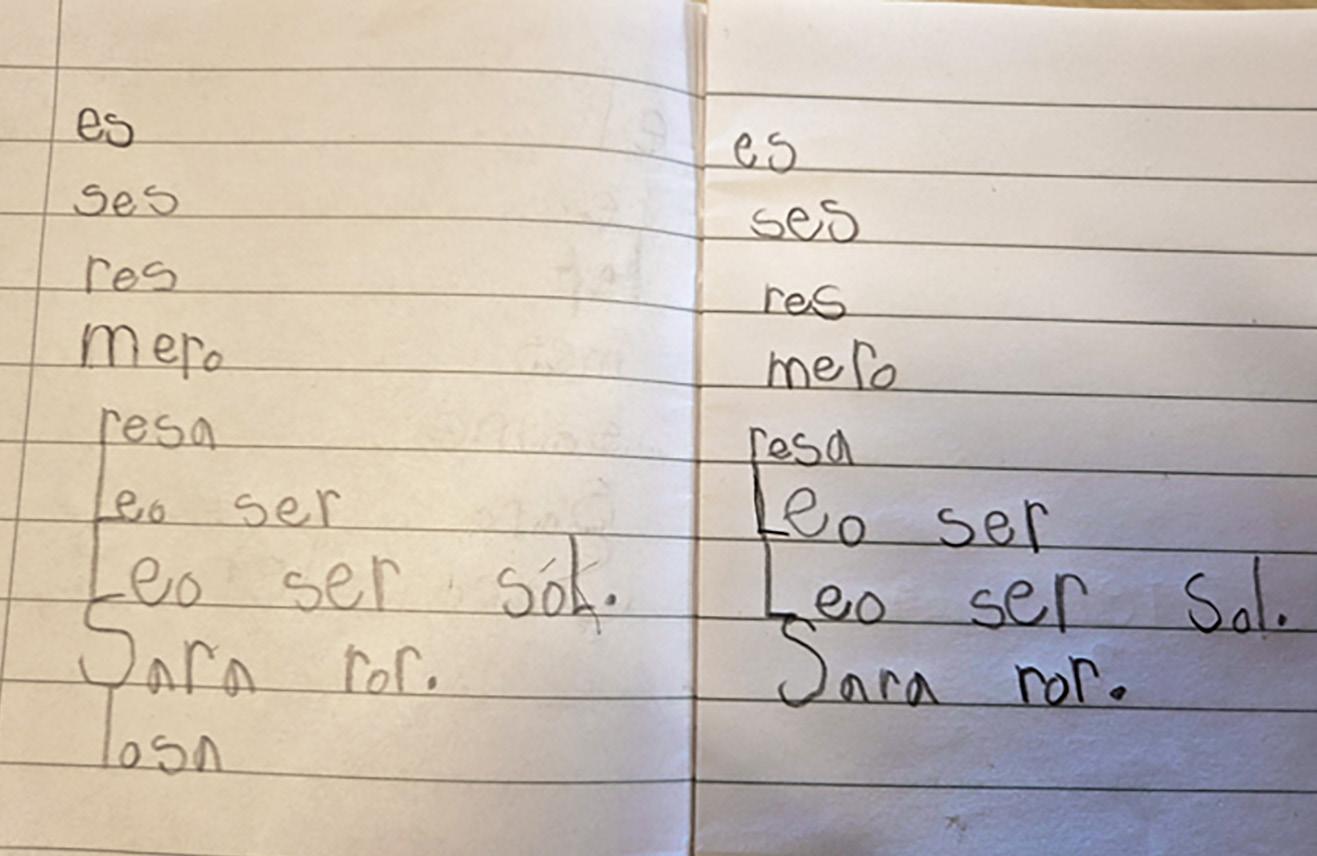 es
ses
res
mero
resa
Leo ser
Leo ser sol.
Sara ror.
losa
es
ses
res
mero
resa
Leo ser
Leo ser Sol.
Sara ror.